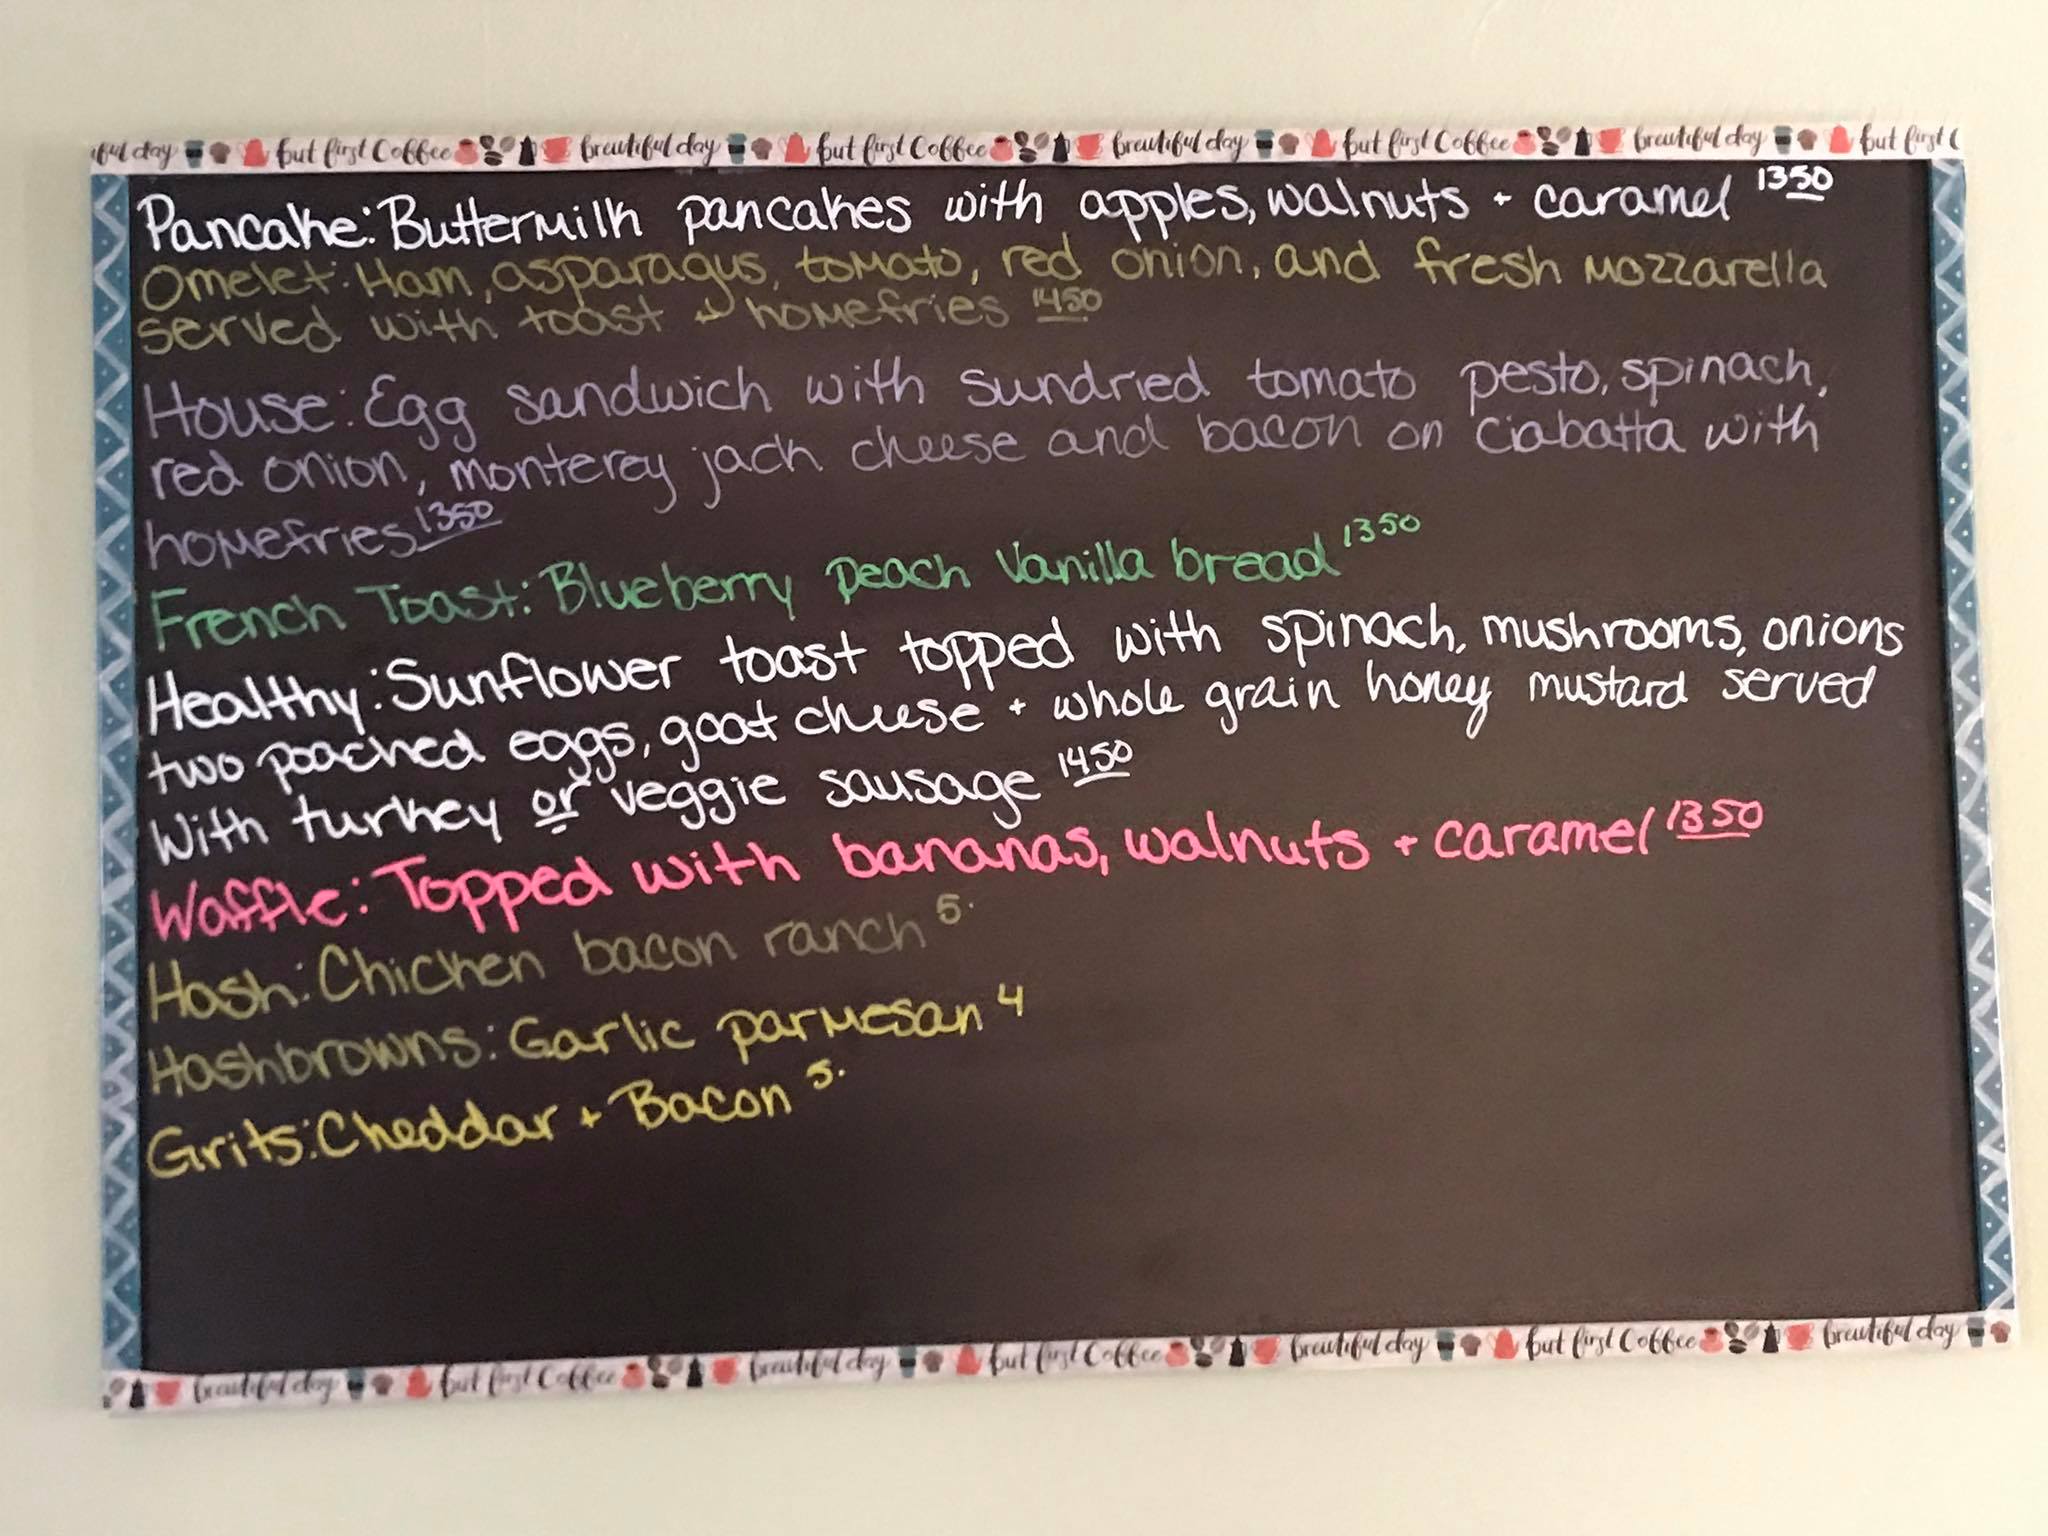 iful day but first Coffee beautiful day but first Coffee beautiful day but first Coffee beautiful day but first C
Pancake: Buttermilk pancakes with apples, walnuts + caramel 1350
Omelet: Ham, asparagus, tomato, red onion, and fresh mozzarella
served with toast + homefries 1450
House: Egg sandwich with sundried tomato pesto, spinach,
red onion, monterey jack cheese and bacon on ciabatta with
homefries 1350
French Toast: Blueberry peach Vanilla bread 1350
Healthy: Sunflower toast topped with spinach, mushrooms, onions
two poached eggs, goat cheese + whole grain honey mustard served
With turkey or veggie sausage 1450
Waffle: Topped with bananas, walnuts + caramel 1350
Hash: Chicken bacon ranch 5.
Hashbrowns: Garlic parmesan 4
Grits: Cheddar + Bacon 5.
beautiful day but first Coffee beautiful day but first Coffee beautiful day but first Coffee beautiful day